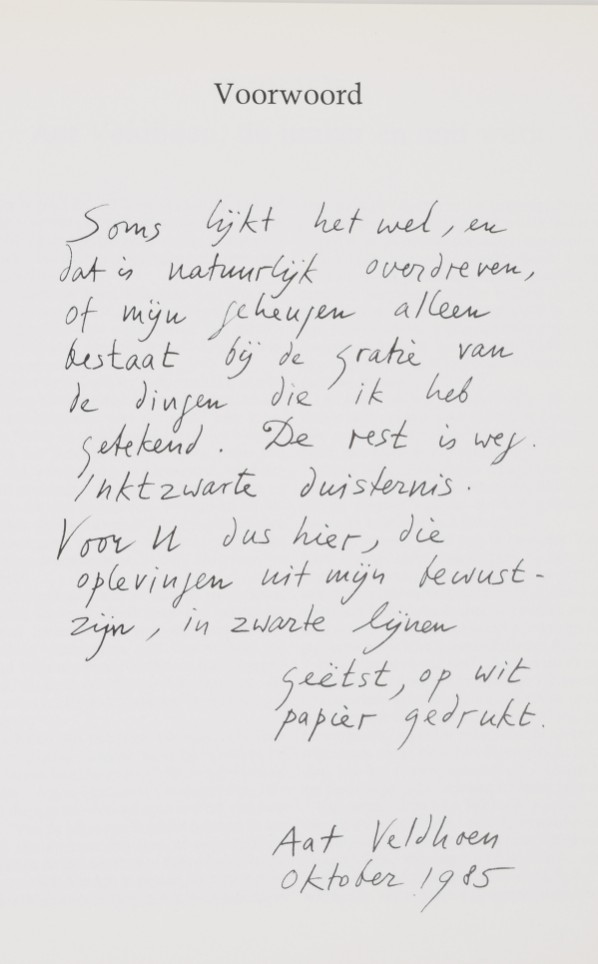 Voorwoord
Soms lijkt het wel, en
dat is natuurlijk overdreven,
of mijn geheugen alleen
bestaat bij de gratie van
de dingen die ik heb
getekend. De rest is weg.
Inktzwarte duisternis.
Voor U dus hier, die
oplevingen uit mijn bewust-
zijn, in zwarte lijnen
geëtst, op wit
papier gedrukt.
Aat Veldhoen
Oktober 1985